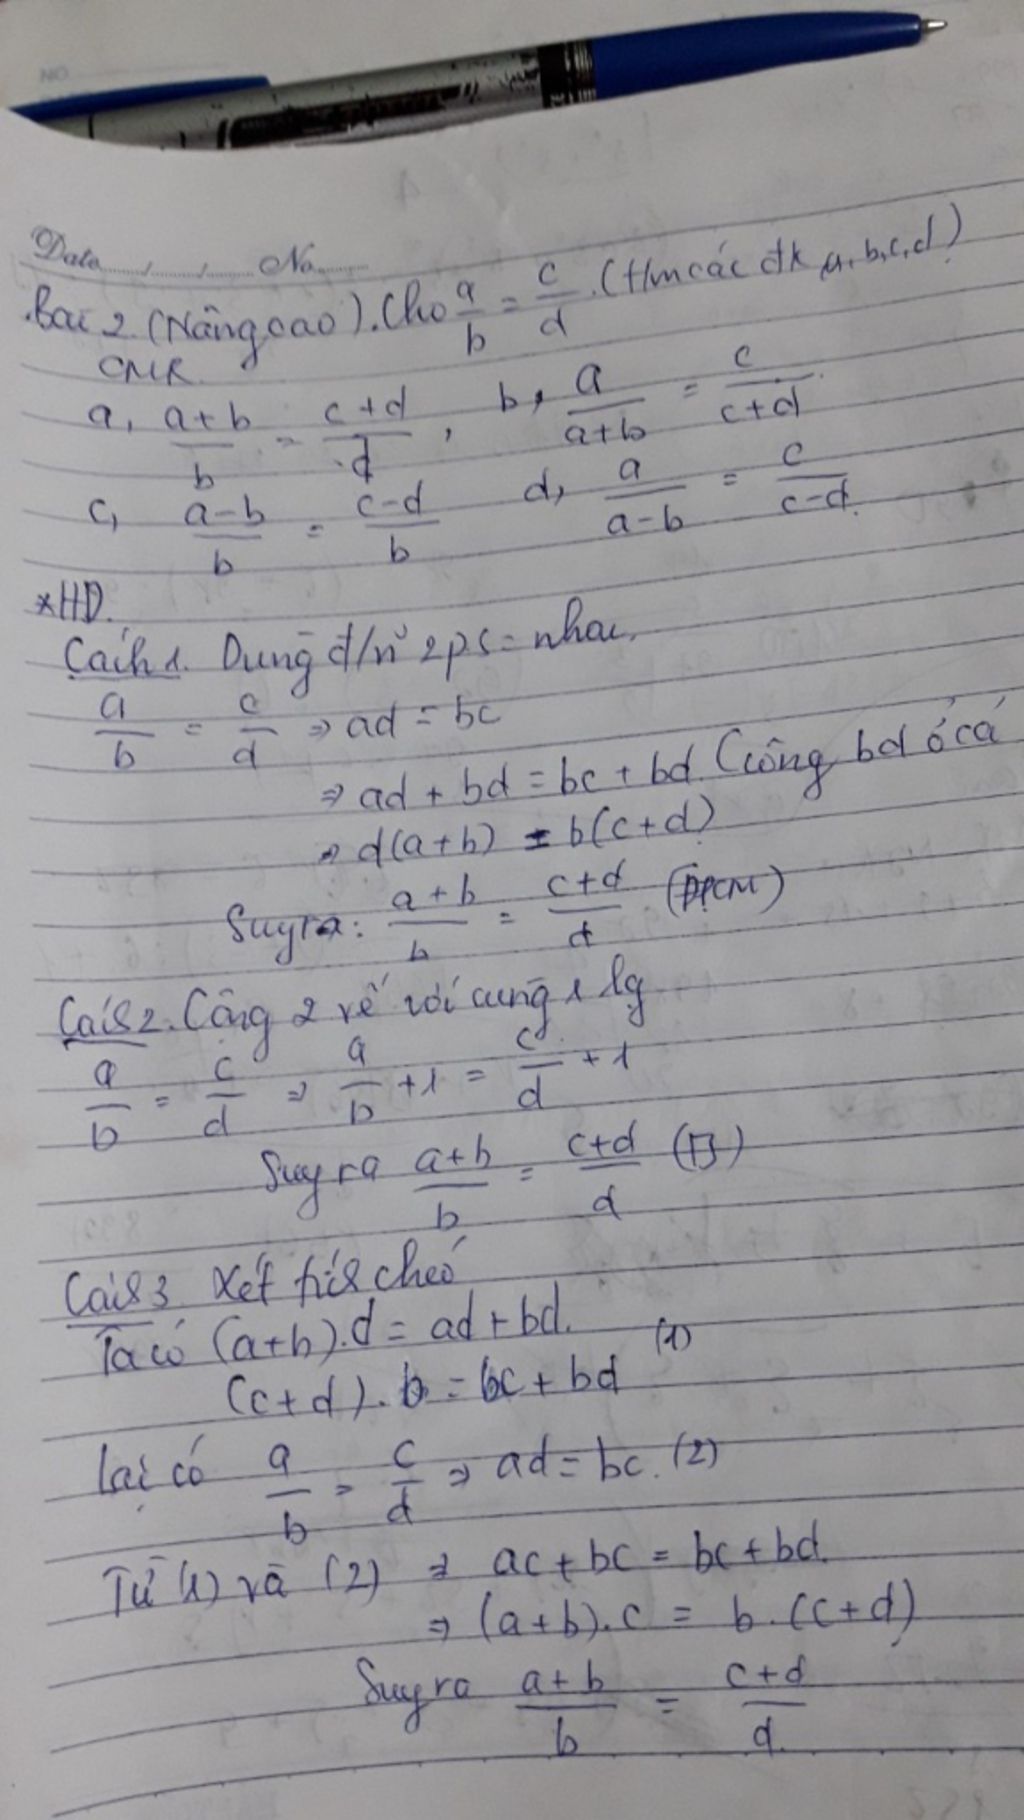 Date....../....../....... No.......
Bài 2. (Nâng cao). Cho a/b = c/d. (t/m các đk a, b, c, d)
CMR.
a, (a+b)/b = (c+d)/d , b, a/(a+b) = c/(c+d).
c, (a-b)/b = (c-d)/b d, a/(a-b) = c/(c-d).
*HD.
Cách 1. Dùng đ/n 2 ps = nhau.
a/b = c/d ⇒ ad = bc
⇒ ad + bd = bc + bd. (cộng bd ở cả
⇒ d(a+b) = b(c+d)
Suy ra: (a+b)/b = (c+d)/d (ĐPCM)
Cách 2. Cộng 2 vế với cùng 1 lg
a/b = c/d ⇒ a/b + 1 = c/d + 1
Suy ra (a+b)/b = (c+d)/d
Cách 3. Xét tích chéo
Ta có (a+b).d = ad + bd.
(c+d).b = bc + bd (1)
lại có a/b = c/d ⇒ ad = bc. (2)
Từ (1) và (2) ⇒ ac + bc = bc + bd.
⇒ (a+b).c = b.(c+d)
Suy ra (a+b)/b = (c+d)/d.